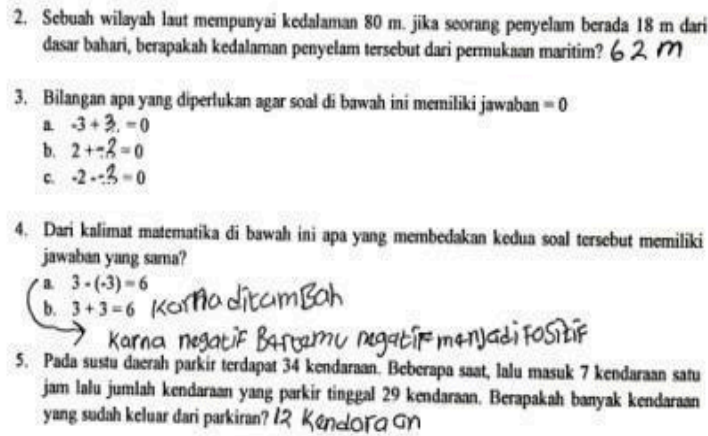 2. Sebuah wilayah laut mempunyai kedalaman 80 m. jika seorang penyelam berada 18 m dari
dasar bahari, berapakah kedalaman penyelam tersebut dari permukaan maritim? 62 m
3. Bilangan apa yang diperlukan agar soal di bawah ini memiliki jawaban = 0
a. -3 + 3. = 0
b. 2 + -2 = 0
c. -2 - -3 = 0
4. Dari kalimat matematika di bawah ini apa yang membedakan kedua soal tersebut memiliki
jawaban yang sama?
a. 3 - (-3) = 6
b. 3 + 3 = 6 Karna ditambah
Karna negatif Bertemu negatif menjadi Fositif
5. Pada suatu daerah parkir terdapat 34 kendaraan. Beberapa saat, lalu masuk 7 kendaraan satu
jam lalu jumlah kendaraan yang parkir tinggal 29 kendaraan. Berapakah banyak kendaraan
yang sudah keluar dari parkiran? 12 Kendaraan